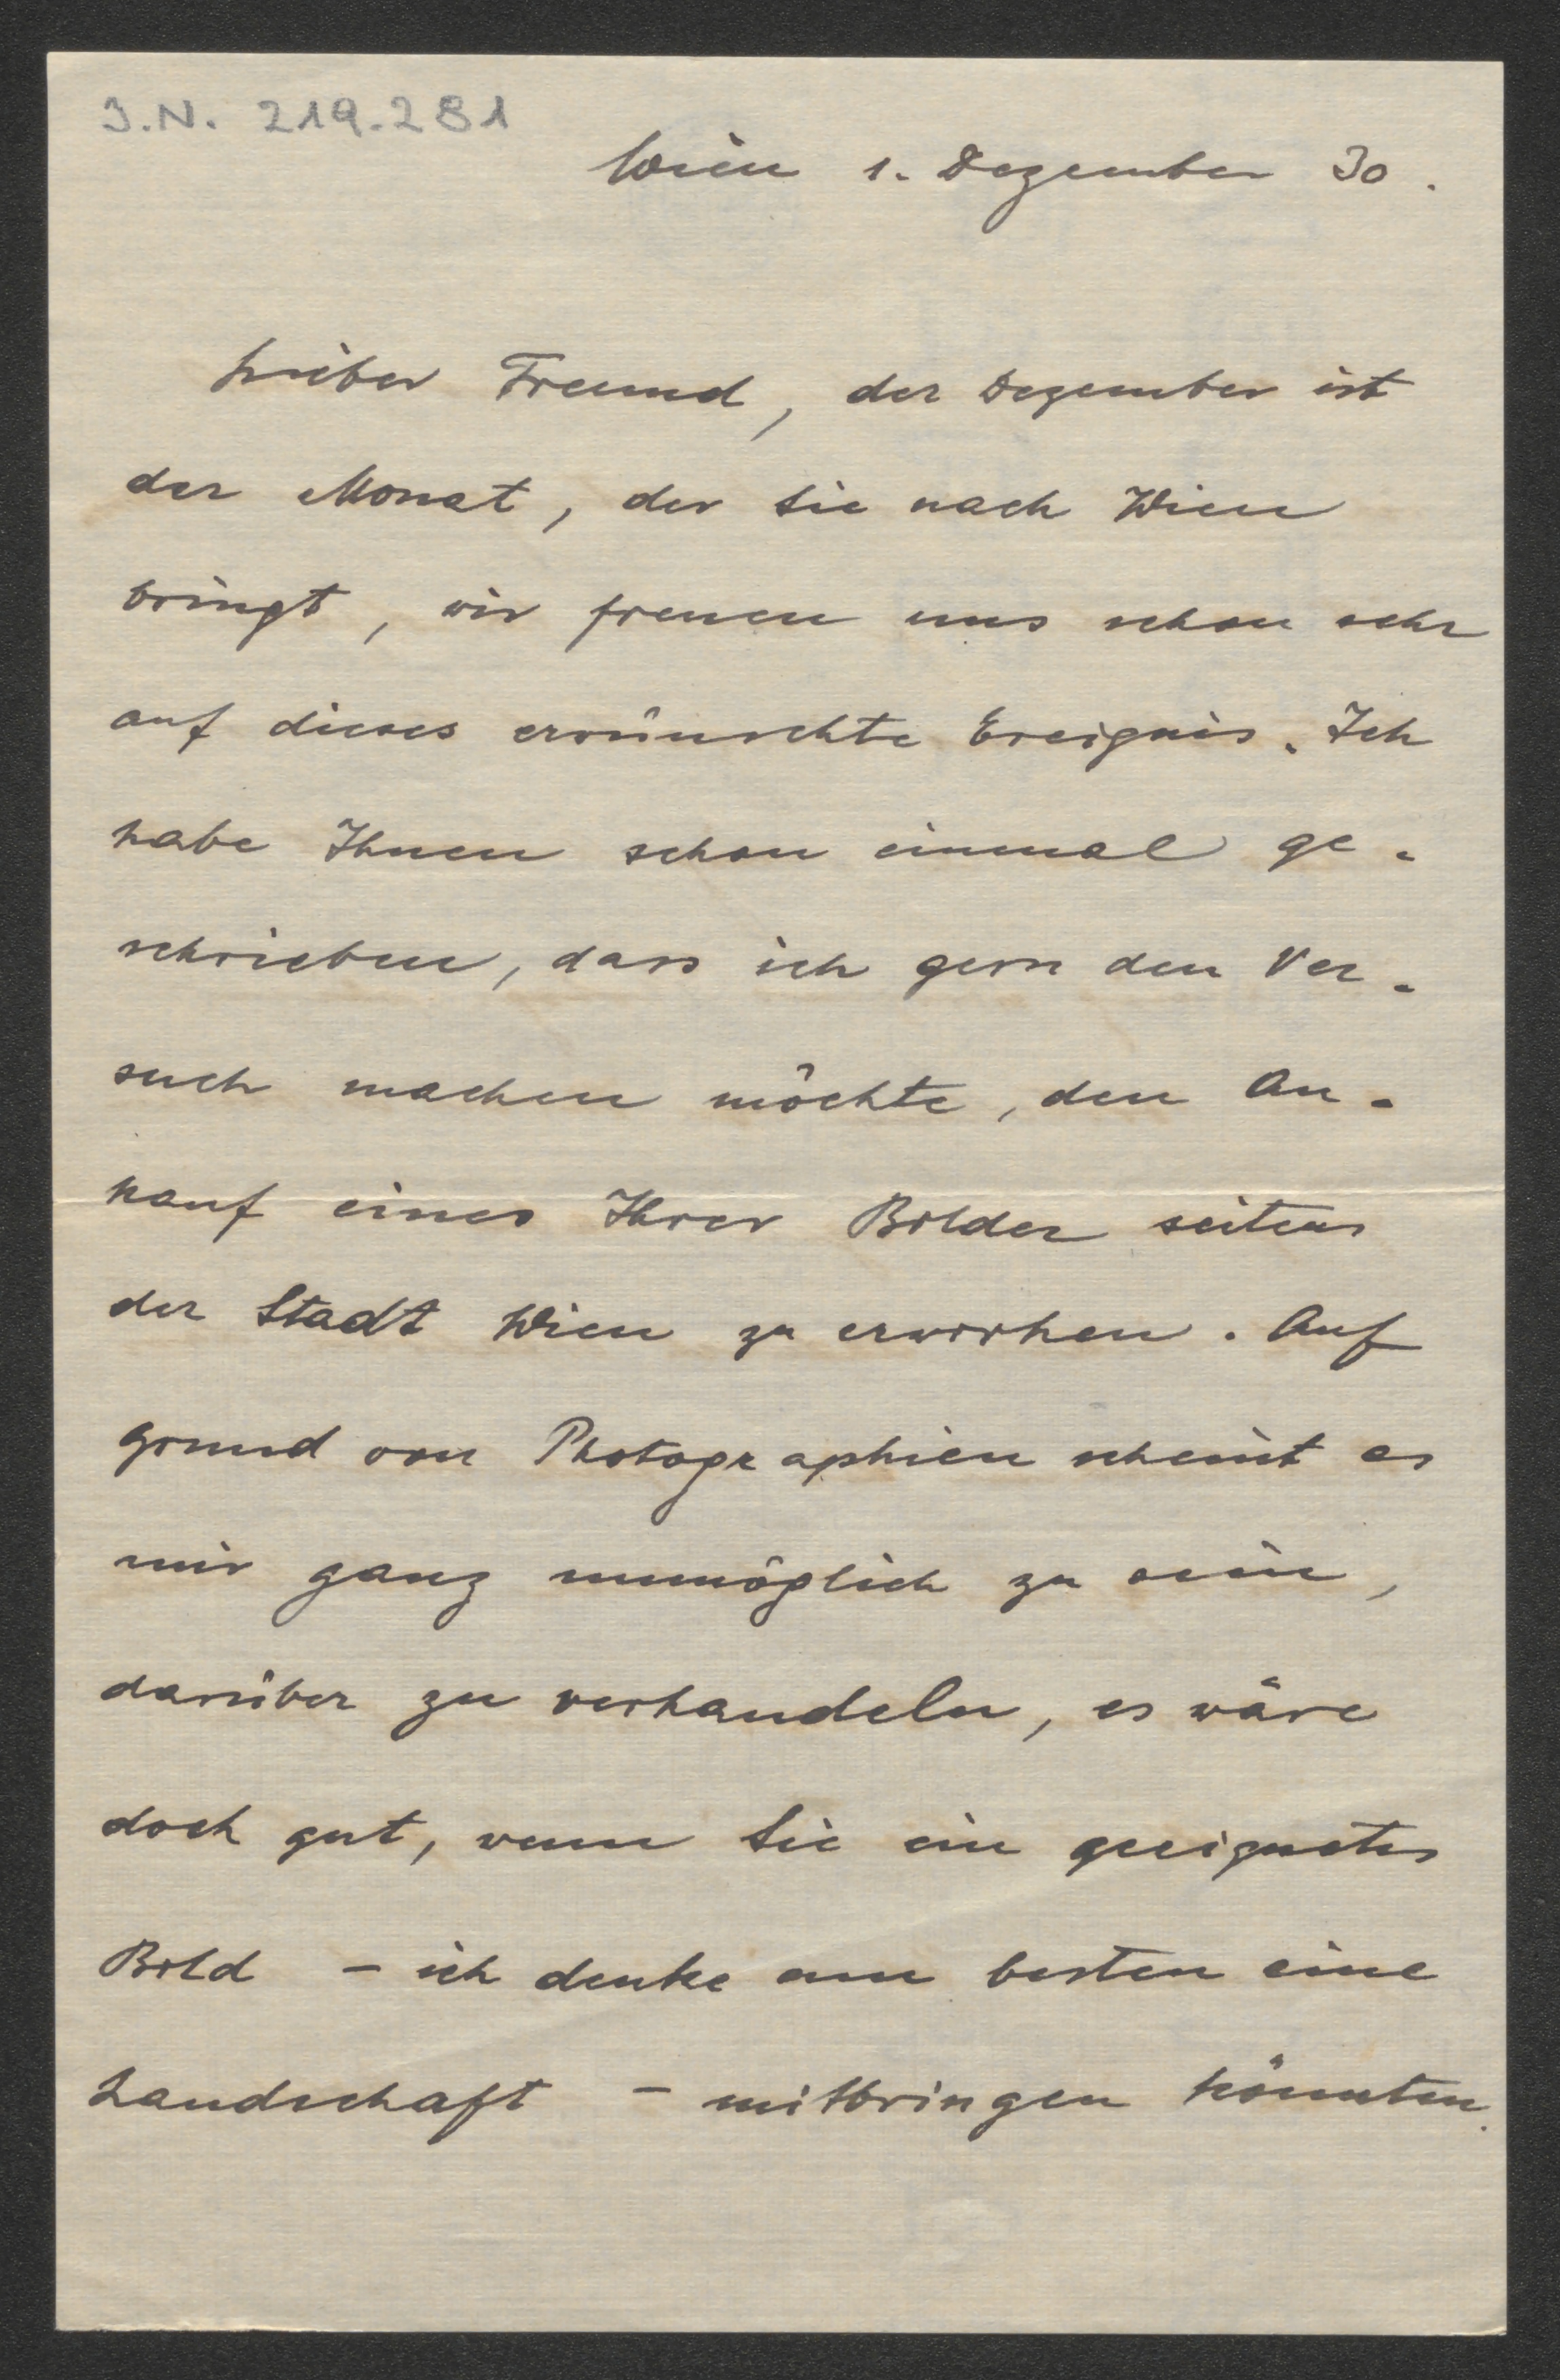 J.N. 219.281
Wien 1. Dezember 30.
Lieber Freund, der Dezember ist
der Monat, der Sie nach Wien
bringt, wir freuen uns schon sehr
auf dieses erwünschte Ereignis. Ich
habe Ihnen schon einmal ge-
schrieben, dass ich gern den Ver-
such machen möchte, den An-
kauf eines Ihrer Bilder seitens
der Stadt Wien zu erwirken. Auf
grund von Photographien scheint es
mir ganz unmöglich zu sein,
darüber zu verhandeln, es wäre
doch gut, wenn Sie ein geeignetes
Bild – ich denke am besten eine
Landschaft – mitbringen könnten.